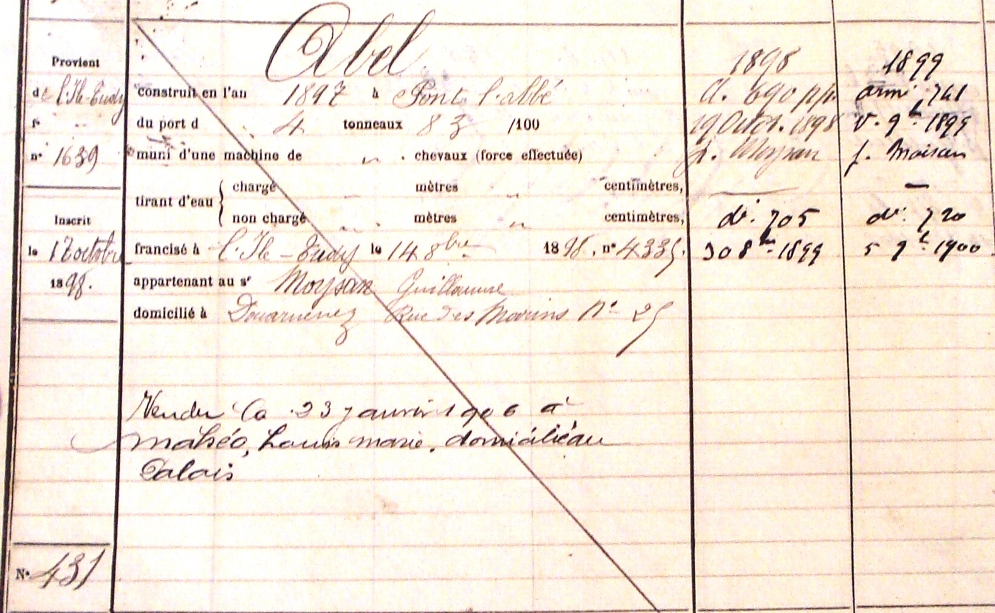 Abel
Provient
de l'Ile-Tudy
f°
n° 1639
Inscrit
le 17 octobre
1898.
N° 431
construit en l'an 1897 à Pont l'abbé
du port d 4 tonneaux 83 /100
muni d'une machine de " . chevaux (force effectuée)
tirant d'eau { chargé " mètres " centimètres,
non chargé " mètres " centimètres,
francisé à l'Ile-Tudy le 14 8bre 1898, n° 4335.
appartenant au sr Moysan Guillaume
domicilié à Douarnenez Rue des Marins N° 25
Vendu le 23 janvier 1906 à
mahéo, Louis marie, domicilié au
Palais
1898
d. 690 p.p.
19 Octo. 1898
p. Moysan
dé. 705
30 8bre 1899
1899
armé 741
v. 9bre 1899
p. Moisan
dé. 720
5 9bre 1900